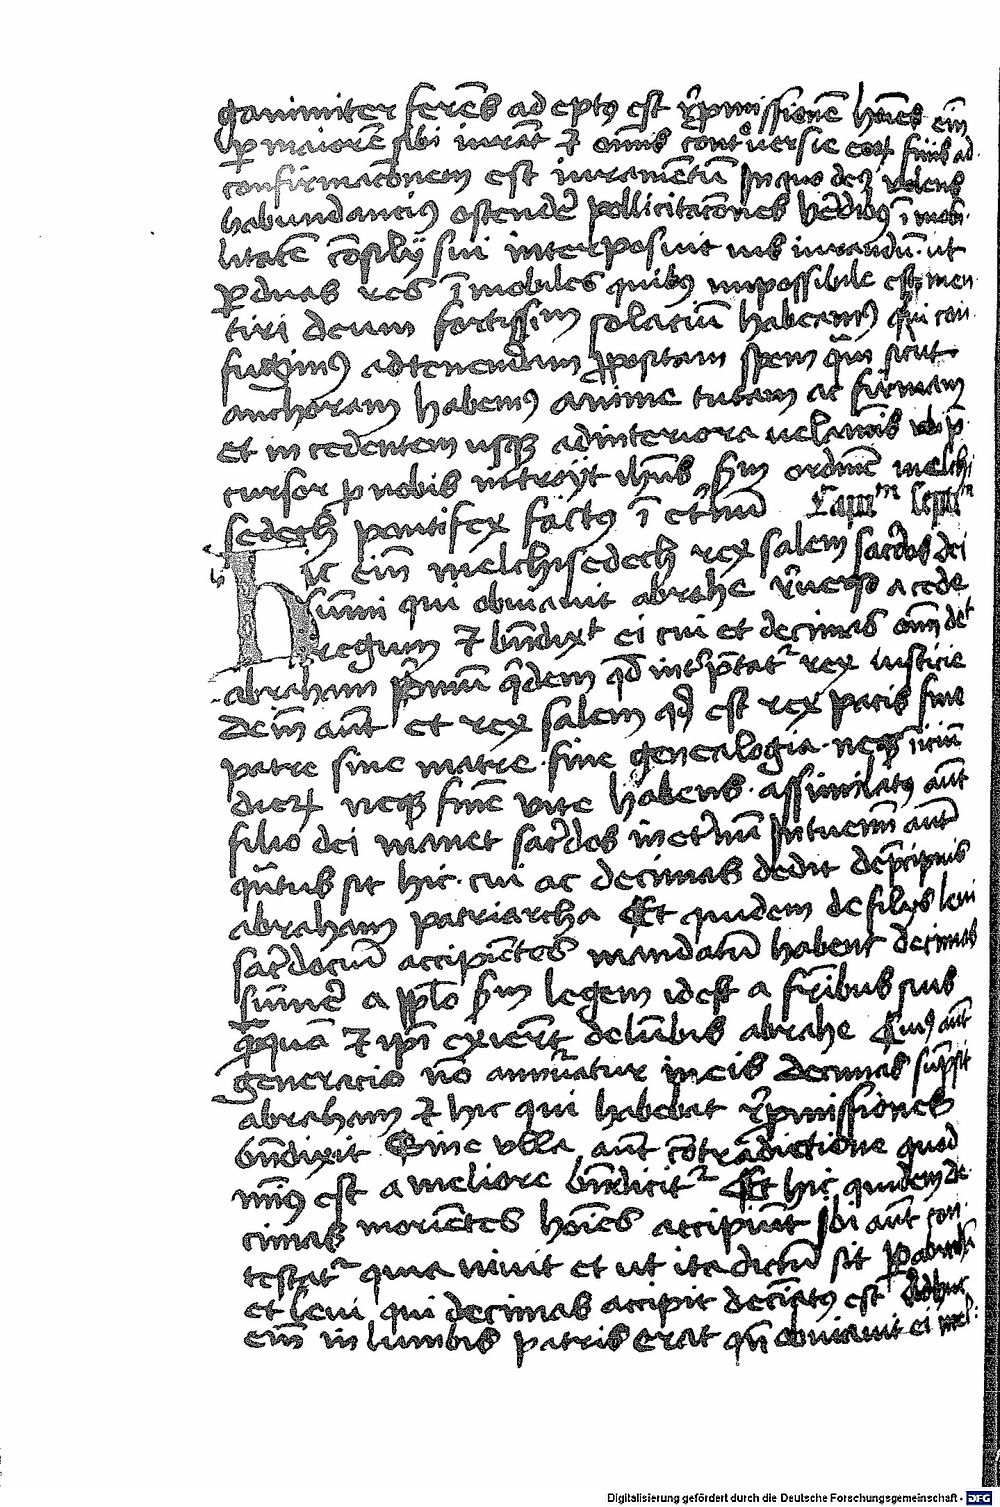 ganimiter ferēs adeptꝯ est rēpmissionē hoīes eīm
ꝑ maiorē sibi iurāt ⁊ omīs contᵒuersie eoꝝ finis ad
confirmacōnem est iuramētū In quo deꝯ volens
habundanciꝯ ostendē̉ pollicitacōnes hēdibꝯ ī mobi
litatē cōsilij sui interposuit ius iurandū. ut
ꝑ duas res ī mobiles quibꝯ impossibile est men
tiri deum fortissim̄ solaciū habeamꝯ qui con
fugimꝯ ad tenendam ꝓpositam spem quā sicut
anchoram habemꝯ anime tutam ac firmam
et incedentem usqꝫ ad interiora uelamīs ubi p̄
cursor ꝓ nobis introijt ihūs scd̄m ordinē melchi
sedech pontifex factꝯ ī etnū Capᵐ septīᵐ
Hic eīm melchisedech rex salem sacēdos dei
sūmi qui obuiauit abrahe rēuerso a cede
regum ⁊ bn̄dixᵗ ei cui et decimas omīm deᵗ
abraham pīmū qīdem qd̄ intᵖptatᷣ rex iusticie
deīn aūt et rex salem qd̄ est rex pacis sine
patre sine matre. sine genealogia. neqꝫ iniciū
dieꝝ neqꝫ finē vite habens. assimilatꝯ aūt
filio dei manet sacēdos in etnū Intuemī aūt
quātus sit hic. cui ac decimas dedit de pcipuis
abraham patriarcha Et quidem de filijs leui
sacēdociū accipiētes mandatū habent decimas
sūmē̉ a pplo scd̄m legem id est a frībus suis
qm̄quā ⁊ ipī exierīt de lūbis abrahe Cuiꝯ aūt
generacio nō annūatur in eis decimas sūpsit
abraham ⁊ hic qui habebat rēpmissiones
bn̄dixit Sine ulla aūt cōtradictione quod
minꝯ est a meliore bn̄dicitᷣ Et hic quidem de
cimas moriētes hoīes accipiūt Ibi aūt con
testatᷣ quia uiuit et ut ita dictū sit ꝑ abrahā
et leui qui decimas accipit deciatꝯ est Adhuc
eīm in lumbis patris erat qn̄ obuiauit ei mel
Digitalisierung gefördert durch die Deutsche Forschungsgemeinschaft - DFG